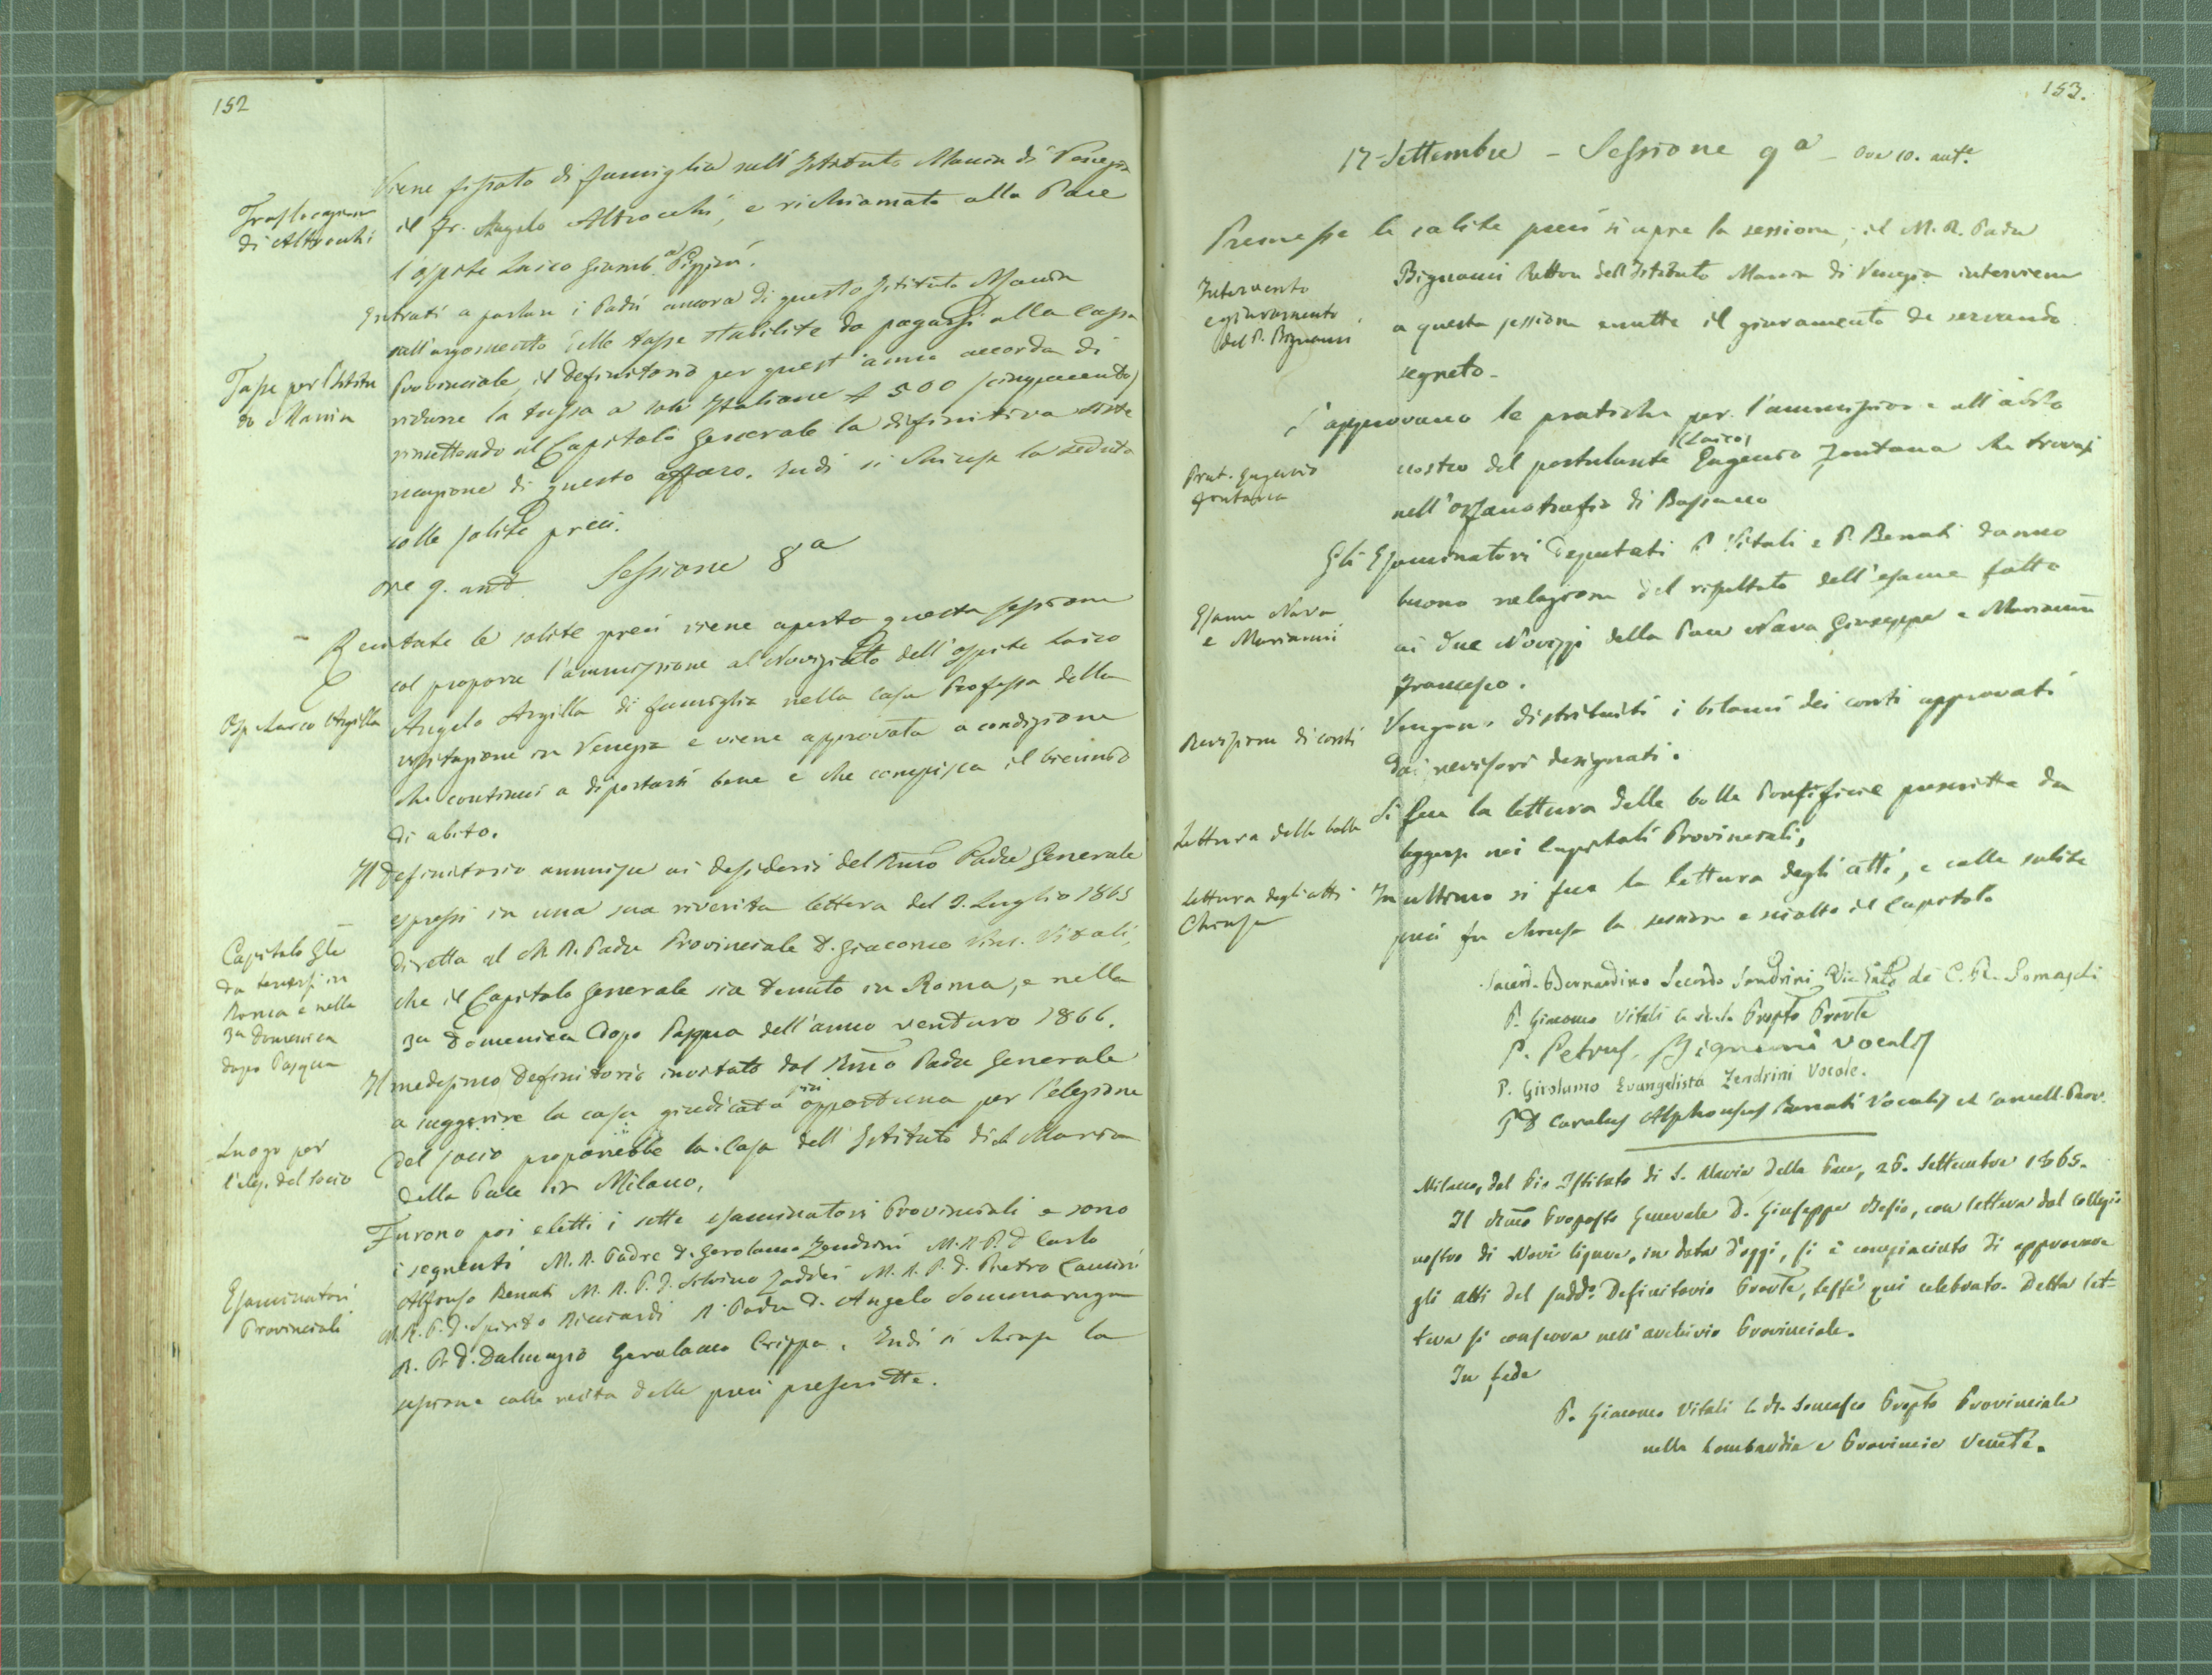 152
Viene fissato di famiglia nell'Istituto Manin di Venezia
Traslocazione
di Altrocchi
il Fr. Angelo Altrocchi, e richiamato alla Pace
l'ospite Laico Giamb.a
Entrati a parlare i Padri ancora di questo Istituto Manin
sull'argomento delle tasse stabilite da pagarsi alla cassa
Tasse per l'Istitu
to Manin
Provinciale, il Definitorio per quest'anno accorda di
ridurre la tassa a sole Italiane £ 500 (cinquecento)
rimettendo al Capitolo Generale la difinitiva siste
mazione di questo affare. Indi si chiuse la seduta
colle solite preci.
ore 9. ant. Sessione 8a
Recitate le solite preci viene aperta questa sessione
col proporre l'ammissione al Noviziato dell'ospite laico
Osp. Laico Argilla
Angelo Argilla di famiglia nella Casa Professa della
visitazione in Venezia e viene approvata a condizione
che continui a diportarsi bene e che compisca il biennio
di abito.
Il Definitorio annuisce ai desiderii del Rmo Padre Generale
espressi in una sua riverita lettera del 9. Luglio 1865
diretta al M. R. Padre Provinciale D. Giacomo Vinc. Vitali,
Capitolo Gle
da tenersi in
Roma e nella
3a Domenica
dopo Pasqua
che il Capitolo Generale sia tenuto in Roma, e nella
3a Domenica dopo Pasqua dell'anno venturo 1866.
Il medesimo Definitorio invitato dal Rmo Padre Generale
a suggerire la casa giudicata più opportuna per l'elezione
Luogo per
l'elez. del socio
del socio proporrebbe la Casa dell'Istituto di S. Maria
della Pace in Milano.
Furono poi eletti i sette esaminatori Provinciali e sono
Esaminatori
Provinciali
i seguenti M. R. Padre D. Gerolamo Zendrini M. R. P. D. Carlo
Alfonso Benati M. R. P. D. Silvino Zaddei M. R. P. D. Pietro Camini
M. R. P. D. Spirito Ricciardi R. Padre D. Angelo Sommaruga
R. P. D. Dalmazio Gerolamo Crippa. Indi si chiuse la
sessione colla recita delle preci prescritte.
153.
17 Settembre - Sessione 9a - Ore 10. ante.
Premesse le solite preci si apre la sessione; il M. R. Padre
Intervento
e giuramento
del P. Bignami
Bignami Rettore dell'Istituto Manin di Venezia interviene
a questa sessione emette il giuramento de servando
segreto.
S'approvano le pratiche per l'ammissione all'abito
Prat. Eugenio
Fontana
nostro del postulante (Laico) Eugenio Fontana che trovasi
nell'Orfanotrofio di Bassano
Gli Esaminatori deputati P. Vitali e P. Benati danno
Esame Nava
e Marianni
buona relazione del risultato dell'esame fatto
ai due Novizzi della Pace Nava Giuseppe e Marianni
Francesco.
Revisione di conti
Vengono distribuiti i bilanci dei conti approvati
dai revisori designati.
Lettura delle bolle
Si fece la lettura delle bolle Pontificie prescritte da
leggersi nei Capitoli Provinciali;
Lettura degli atti
Chiusa
In ultimo si fece la lettura degli atti, e colle solite
preci fu chiusa la sessione e sciolto il Capitolo
Sacerd. Bernardino Secondo Sandrini de C. R. Somaschi
P. Giacomo Vitali Prepto Provle
P. Petrus Bignami vocalis
P. Girolamo Evangelista Zendrini Vocale.
P. D. Carolus Alphonsus Benati Vocalis et Cancell. Prov.
Milano, dal Pio Istituto di S. Maria della Pace, 26. Settembre 1865.
Il Rmo Preposto Generale D. Giuseppe Besio, con lettera dal collegio
nostro di Novi ligure, in data d'oggi, si è compiaciuto di approvare
gli atti del sudd.o Definitorio Provle, testé qui celebrato. Detta let-
tera si conserva nell'archivio Provinciale.
In fede
P. Giacomo Vitali C. R. Somasco Prepto Provinciale
nella Lombardia e Provincie Venete.